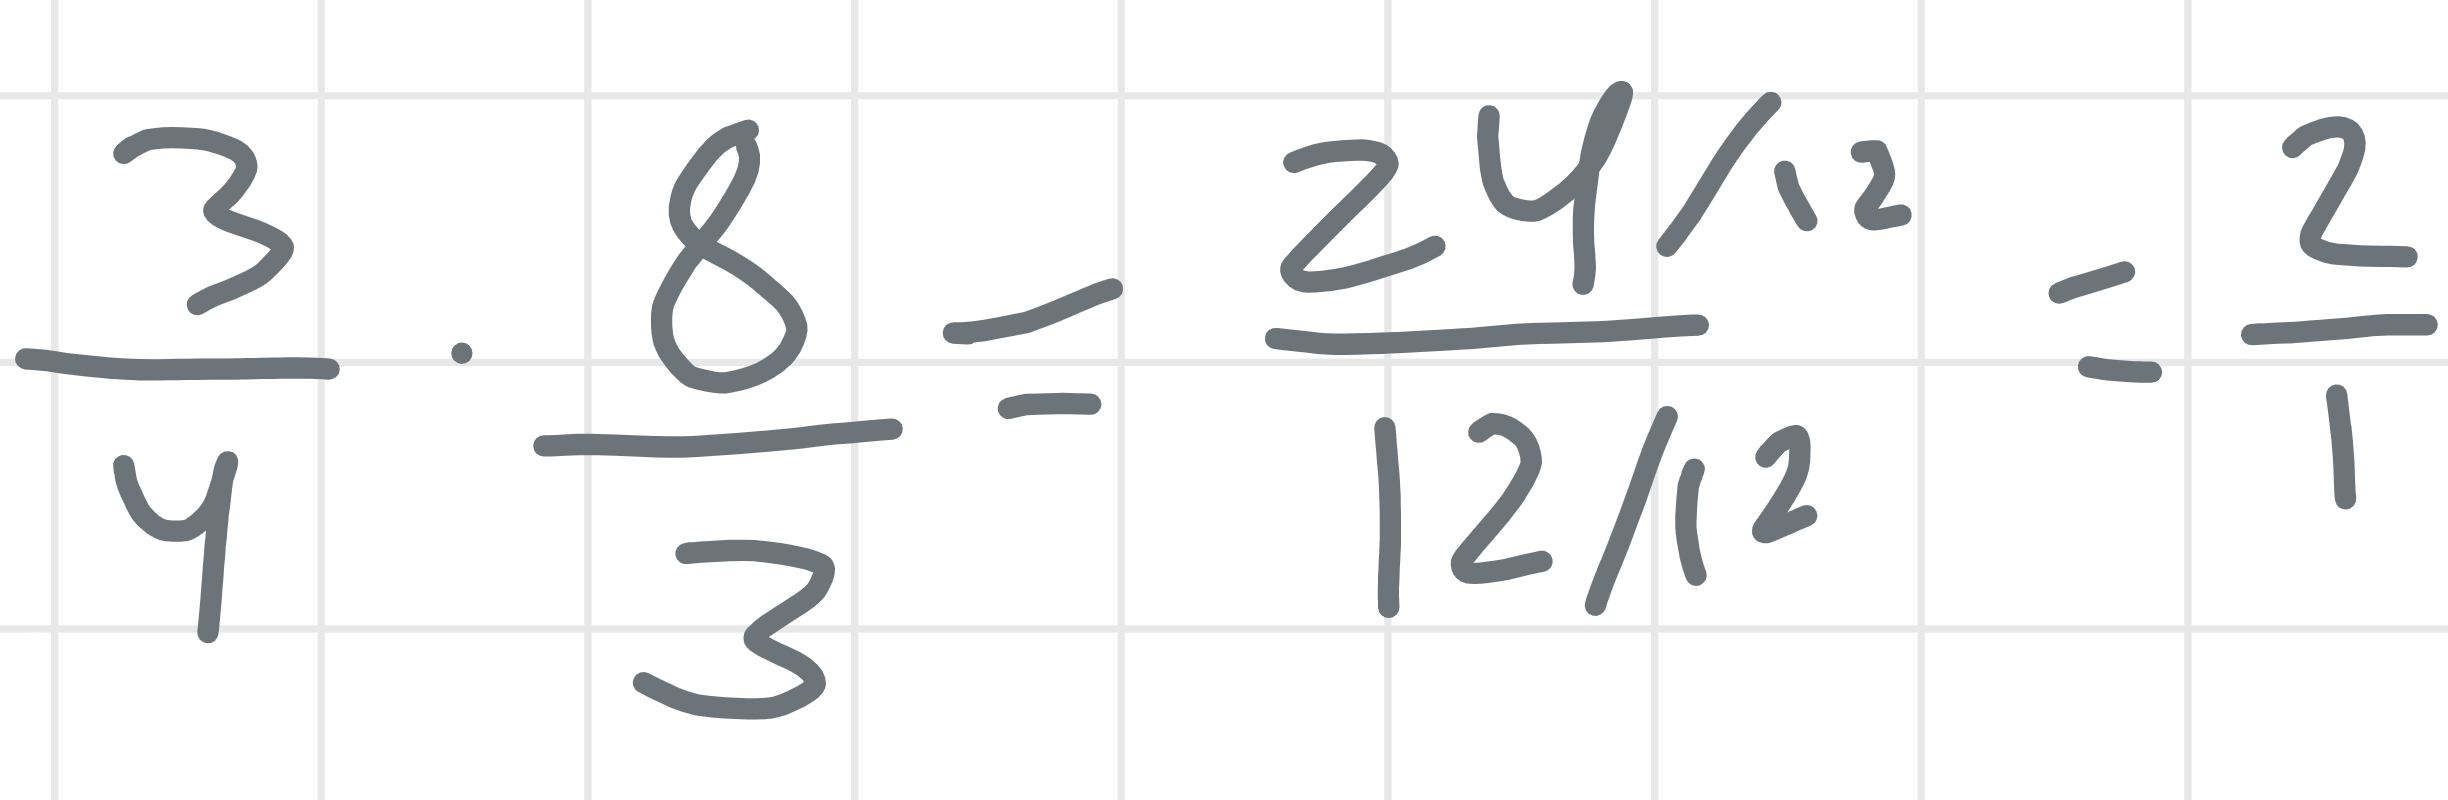 3/4 · 8/3 = (24/12)/(12/12) = 2/1